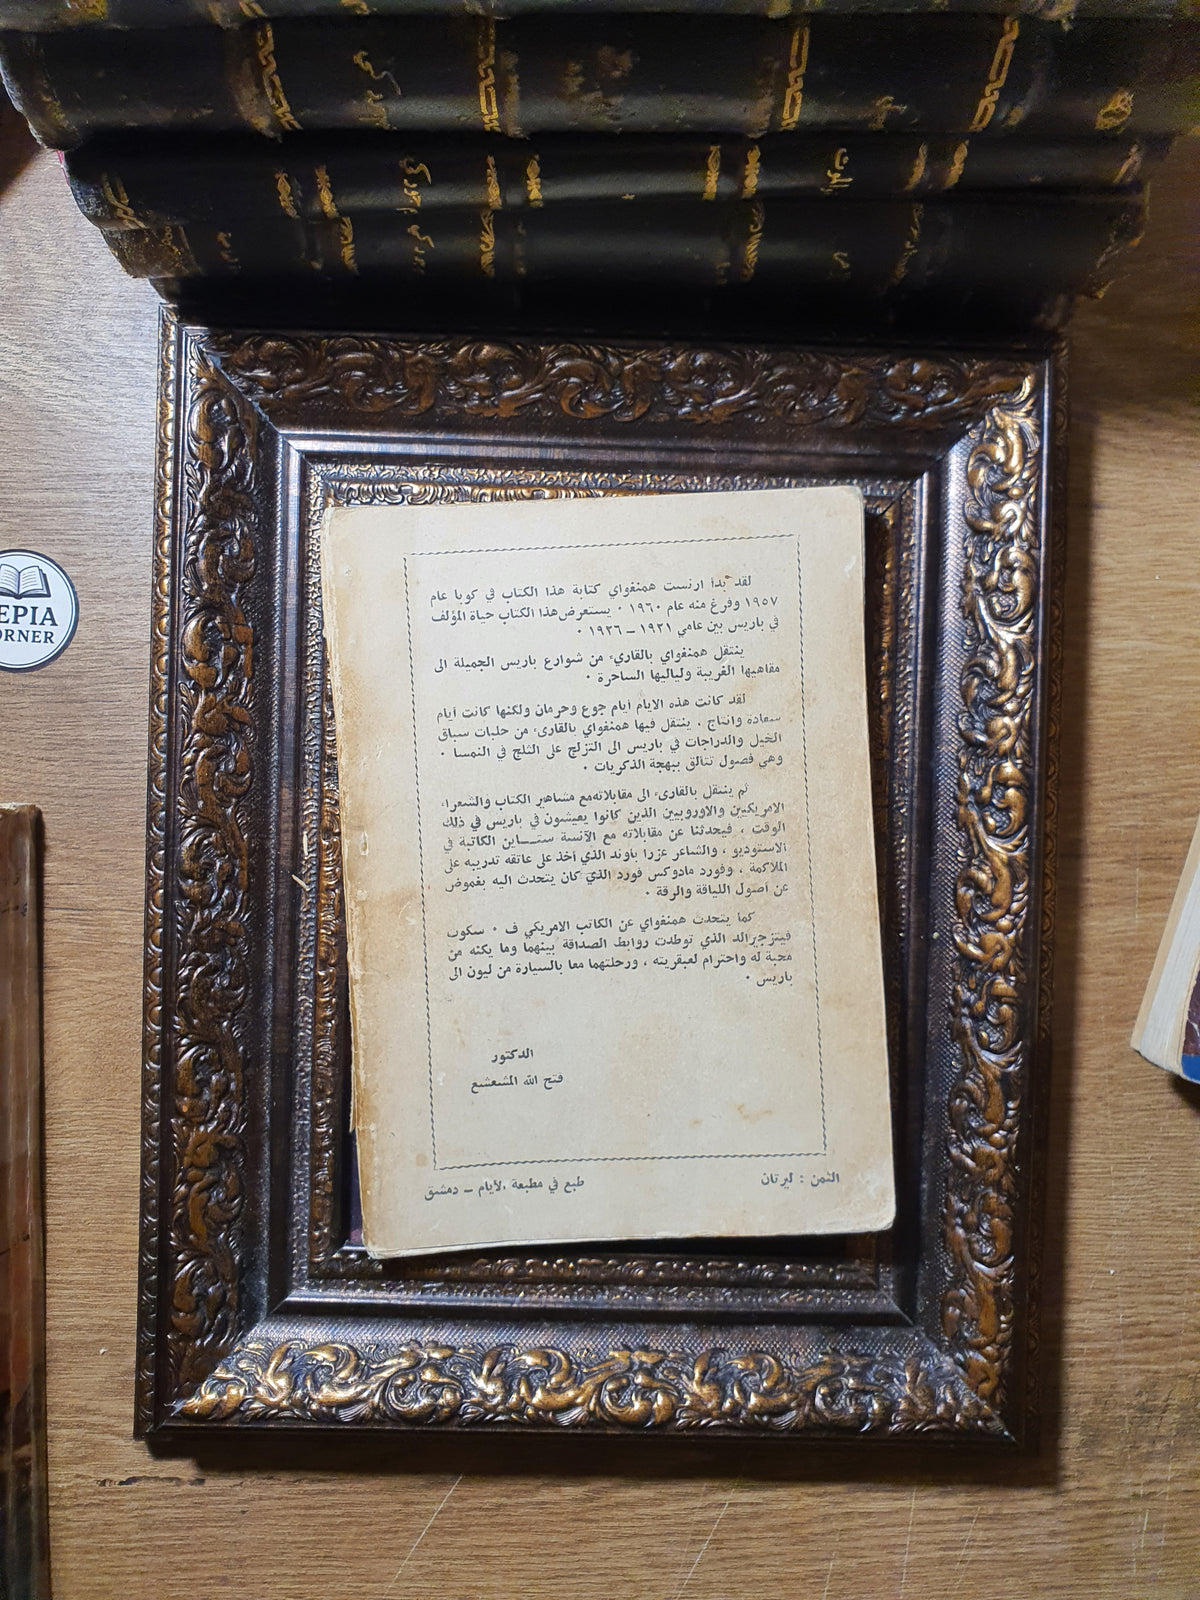 لقد بدأ ارنست همنغواي كتابة هذا الكتاب في كوبا عام
١٩٥٧ وفرغ منه عام ١٩٦٠ · يستعرض هذا الكتاب حياة المؤلف
في باريس بين عامي ١٩٢١ ــ ١٩٢٦ ·
ينتقل همنغواي بالقاريء من شوارع باريس الجميلة الى
مقاهيها الغريبة ولياليها الساحرة ·
لقد كانت هذه الايام أيام جوع وحرمان ولكنها كانت أيام
سعادة وانتاج . ينتقل فيها همنغواي بالقارىء من حلبات سباق
الخيل والدراجات في باريس الى التزلج على الثلج في النمسا ·
وهي فصول تتألق ببهجة الذكريات ·
ثم ينتقل بالقارىء الى مقابلاته مع مشاهير الكتاب والشعراء
الامريكيين والاوروبيين الذين كانوا يعيشون في باريس في ذلك
الوقت ، فيحدثنا عن مقابلاته مع الآنسة ستــاين الكاتبة في
الاستوديو ، والشاعر عزرا باوند الذي أخذ على عاتقه تدريبه على
الملاكمة ، وفورد مادوكس فورد الذي كان يتحدث اليه بغموض
عن أصول اللياقة والرقة ·
كما يتحدث همنغواي عن الكاتب الامريكي ف · سكوت
فيتزجيرالد الذي توطدت روابط الصداقة بينهما وما يكنه من
محبة له واحترام لعبقريته ، ورحلتهما معا بالسيارة من ليون الى
باريس ·
الدكتور
فتح الله المشعشع
الثمن : ليرتان
طبع في مطبعة الأيام ــ دمشق
EPIA
ORNER